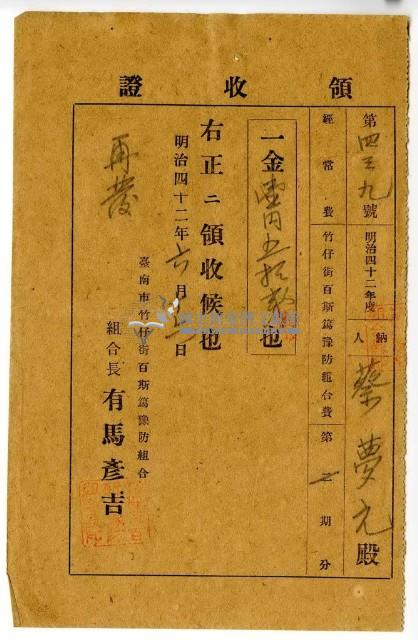 領收證
第四三九號 明治四十二年度 納人 蔡夢元殿
經常費 竹仔街百斯篤豫防組合費 第 期分
一金壹円五拾錢也
右正ニ領收候也
明治四十二年六月 日
臺南市竹仔街百斯篤豫防組合
組合長 有馬彥吉
再發